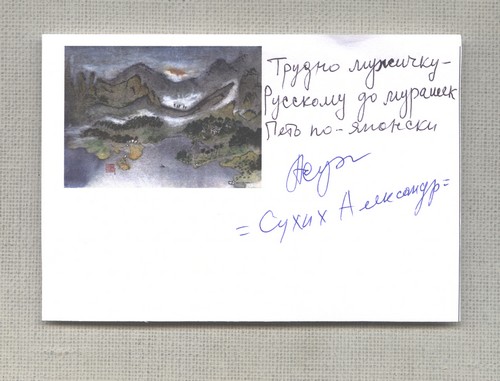 Трудно мужичку-
Русскому до мурашек
Петь по-японски
= Сухих Александр =